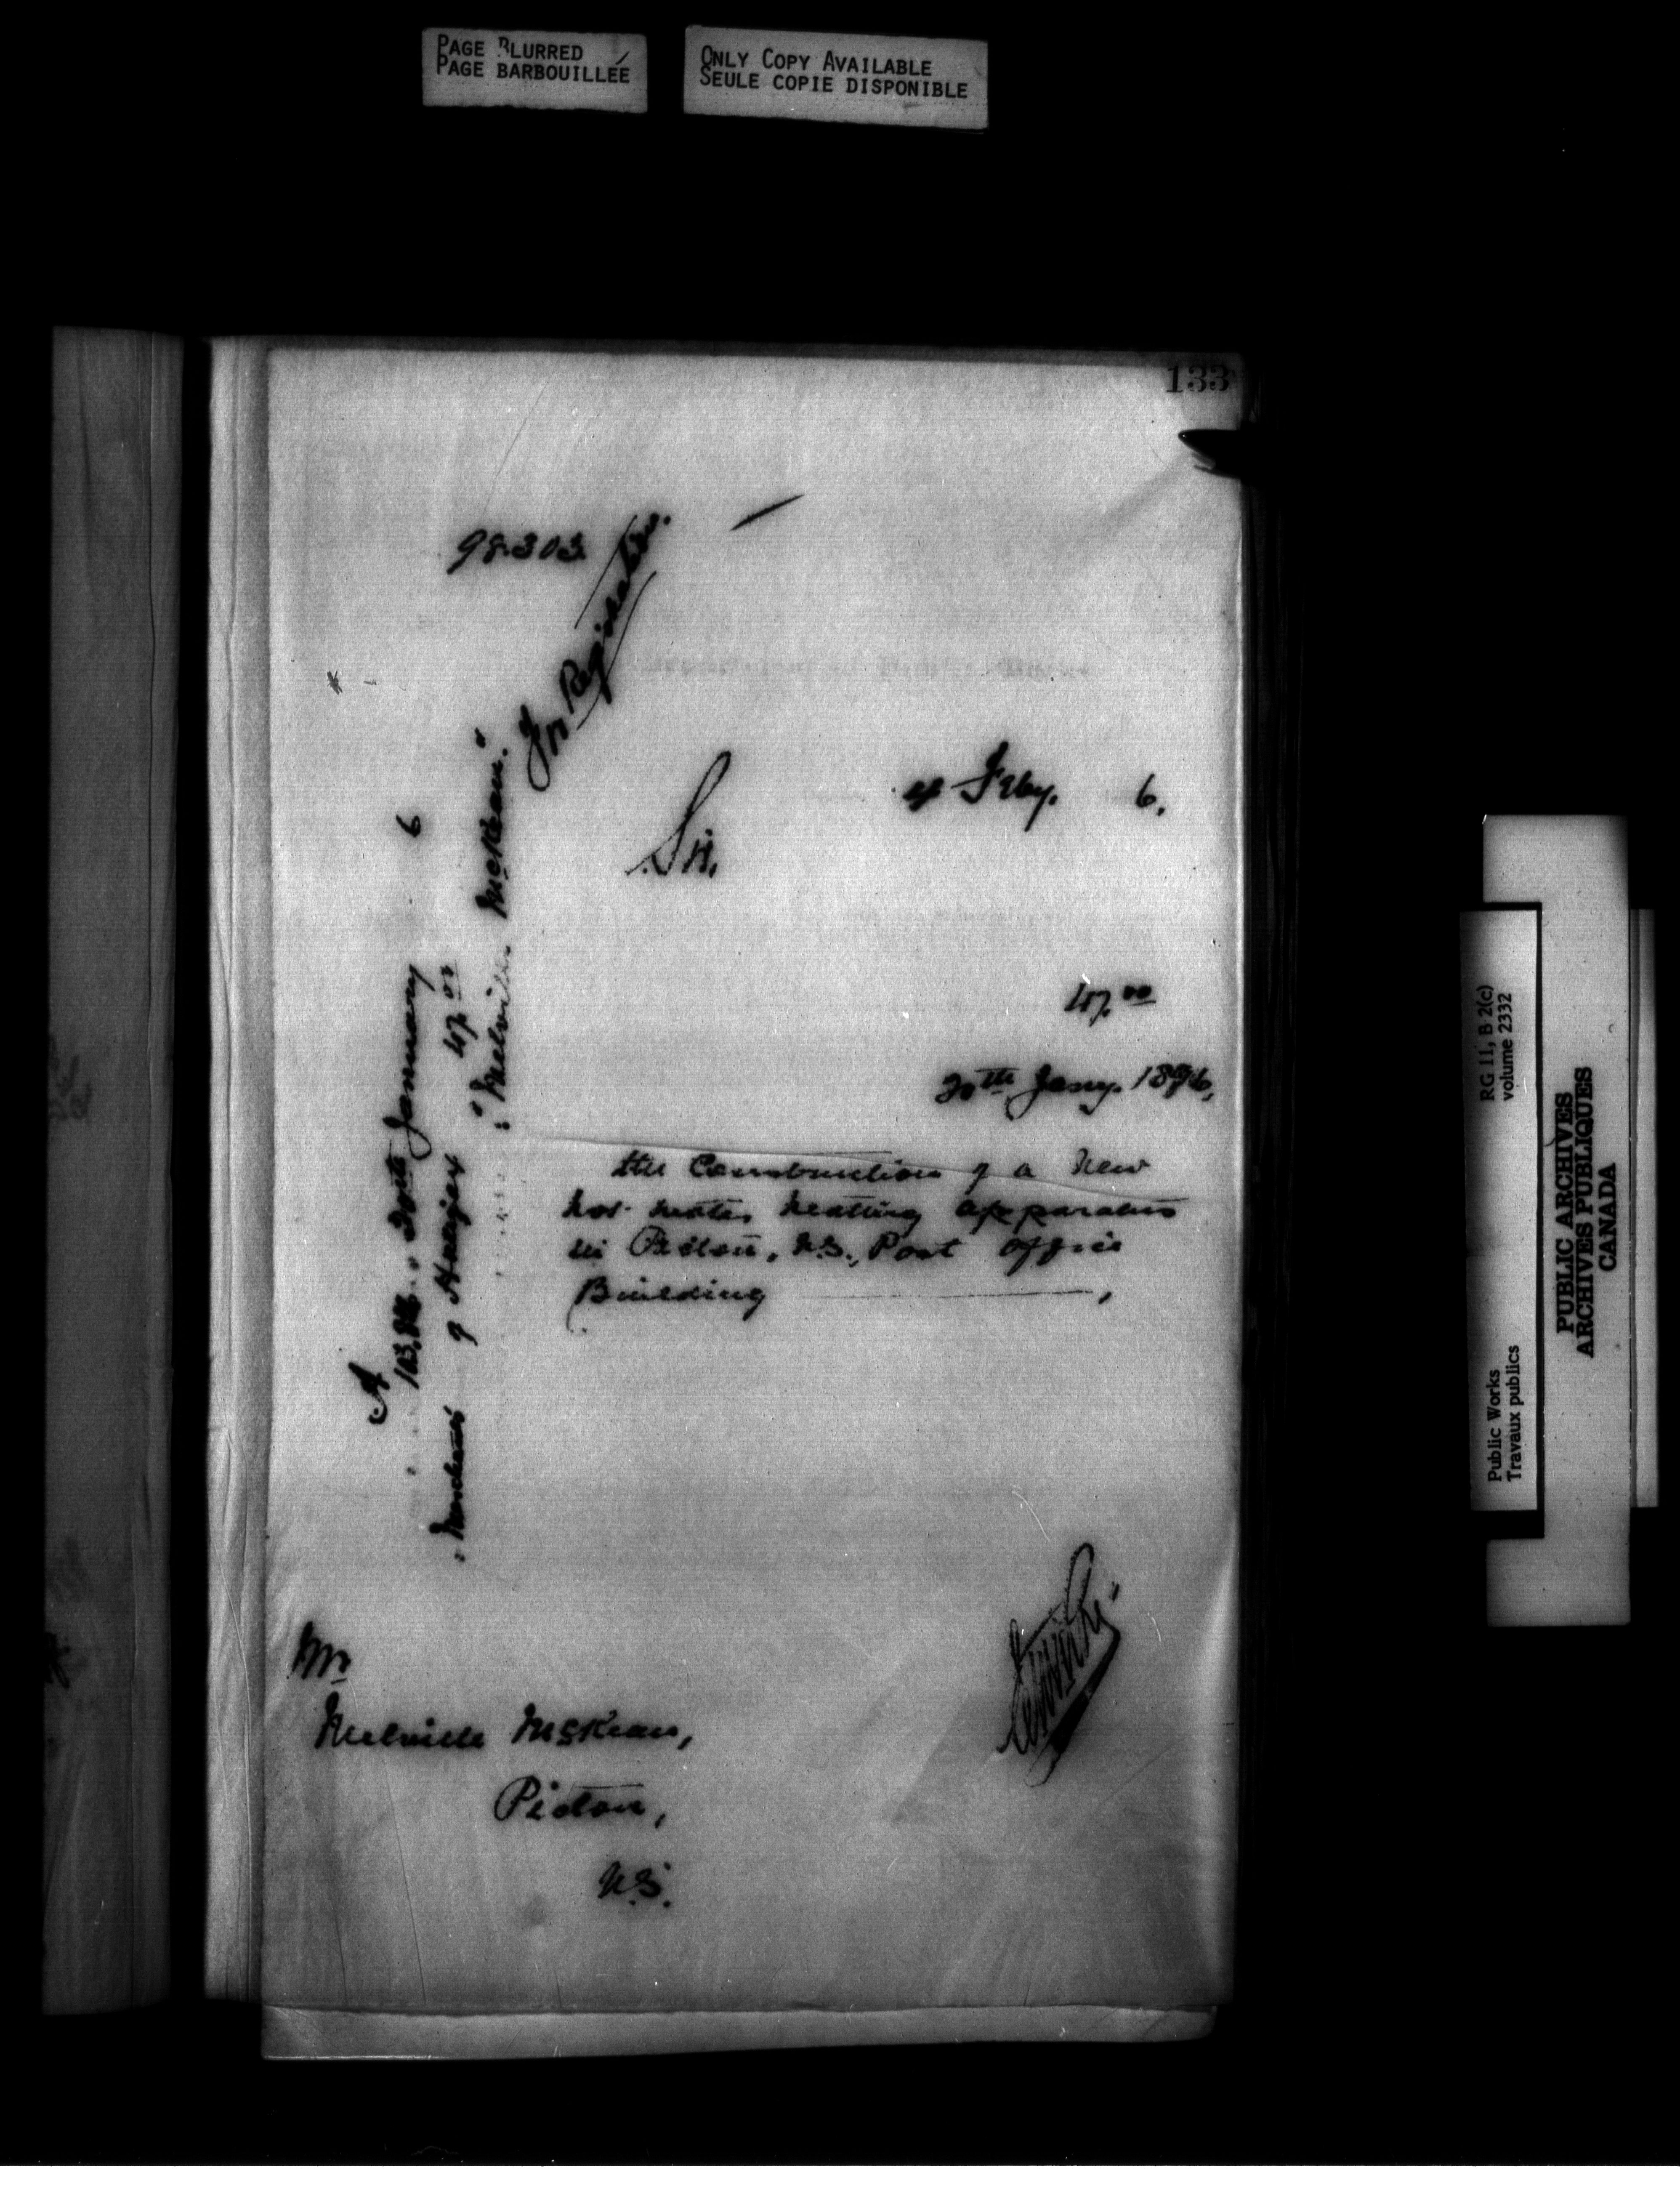 PAGE BLURRED
PAGE BARBOUILLÉE
ONLY COPY AVAILABLE
SEULE COPIE DISPONIBLE
133
98303.
for Registration.
4 Feby. 6.
Sir.
47.00
30th Jany. 1896,
the Construction of a New
hot water heating apparatus
in Pictou, N.S., Post Office
Building ,
A
30th January 6
Merchants of Halifax 47.00
"Melville McKean."
Mr
Melville McKean,
Pictou,
N.S.
RG 11, B 2(c)
volume 2332
Public Works
Travaux publics
PUBLIC ARCHIVES
ARCHIVES PUBLIQUES
CANADA